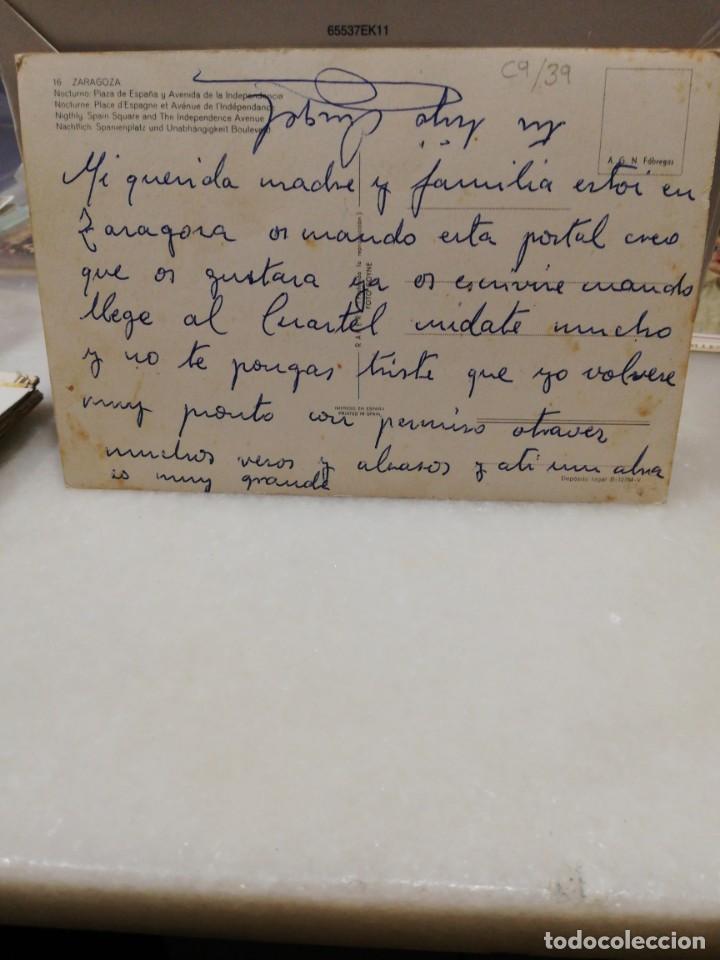 65537EK11
16 ZARAGOZA
Nocturno: Plaza de España y Avenida de la Independencia
Nocturne: Place d'Espagne et Avénue de l'Indépendance
Nigthly: Spain Square and The Independence Avenue
Nachtlich: Spanienplatz und Unabhängigkeit Boulevard
C9/39
A. G. N. Fábregas
Mi querida madre y familia estoi en
Zaragoza os mando esta postal creo
que os gustara ya os escrivire cuando
llege al Cuartel cuidate mucho
y no te pongas triste que yo volvere
muy pronto con permiso otravez
muchos vesos y abrasos y ati un abra
so muy grande
tu hijo
FOTO
IMPRESO EN ESPAÑA
PRINTED IN SPAIN
Depósito legal B.
todocoleccion